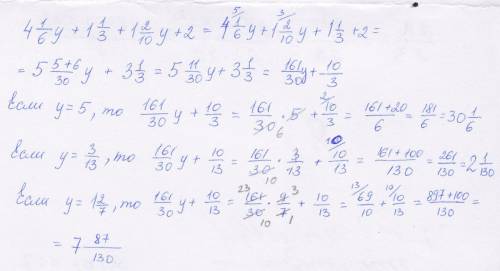 4 1/6 y + 1 1/3 + 1 2/10 y + 2 = 4 ⁵/ 1/6 y + 1 ³/ 2/10 y + 1 1/3 + 2 =
= 5 (5+6)/30 y + 3 1/3 = 5 11/30 y + 3 1/3 = 161/30 y + 10/3
Если y = 5, то 161/30 y + 10/3 = 161/30 6 · 5 + ²/ 10/3 = (161+20)/6 = 181/6 = 30 1/6
Если y = 3/13, то 161/30 y + 10/13 = 161/30 10 · 3/13 + ¹⁰/ 10/13 = (161+100)/130 = 261/130 = 2 1/130
Если y = 1 2/7, то 161/30 y + 10/13 = 23 161/30 10 · 9/7 3 1 + 10/13 = ¹³/ 69/10 + ¹⁰/ 10/13 = (897+100)/130 =
= 7 87/130